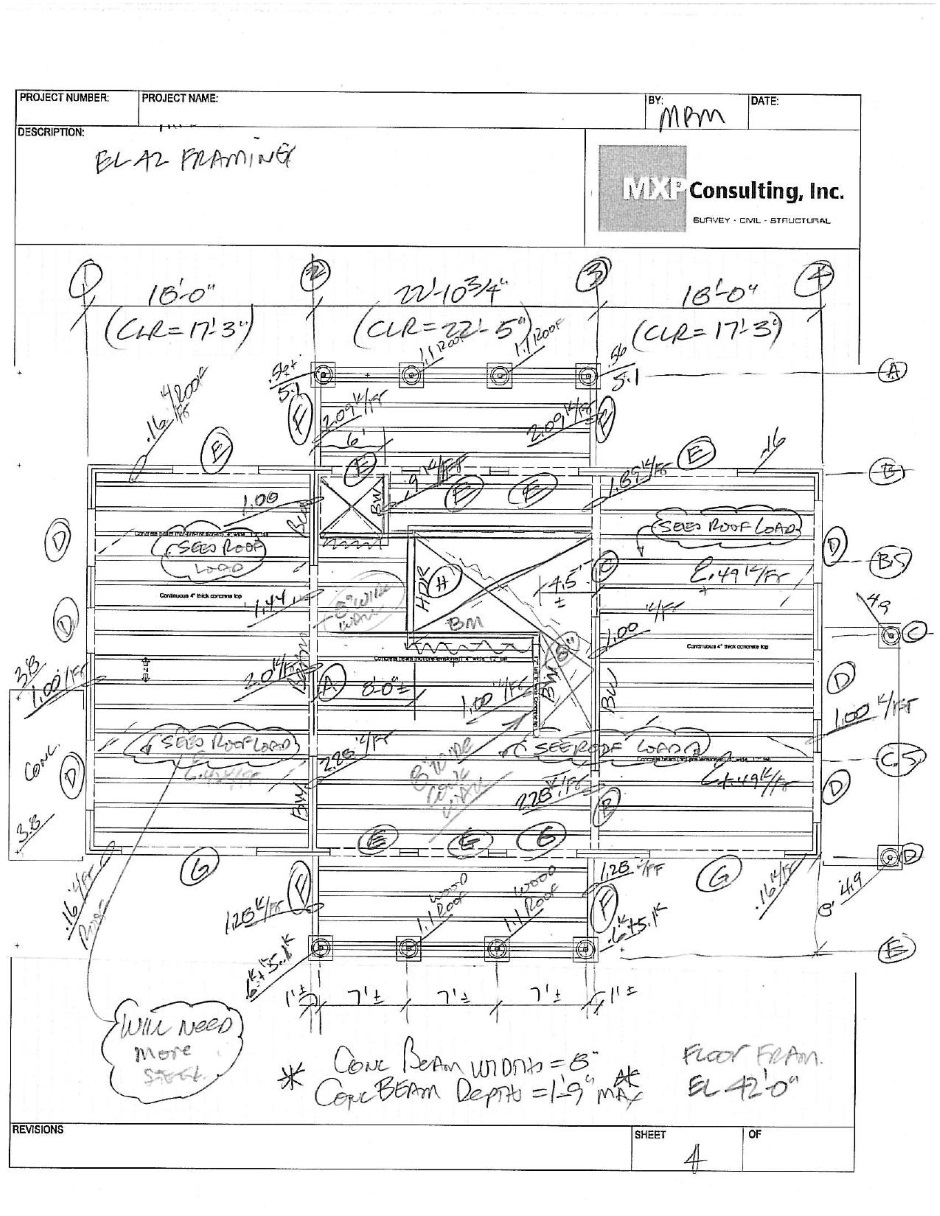 PROJECT NUMBER:
PROJECT NAME:
BY:
MPM
DATE:
DESCRIPTION:
EL 42 FRAMING
MXP Consulting, Inc.
SURVEY - CIVIL - STRUCTURAL
1 2 3 4
18'-0" 22'-10 3/4" 18'-0"
(CLR = 17'-3") (CLR = 22'-5") (CLR = 17'-3")
1.1 ROOF 1.1 ROOF
.56
5.1
5.1
A
.16 K/FT ROOF
F
2.09 K/FT
2.09 K/FT
F
6'
E
E
E
E
E
.16
B
.9 K/FT
1.89 K/FT
1.00
BW
SEES ROOF LOAD
SEES ROOF
LOAD
D
D
B.5
Continuous 4" thick concrete top
HDR
H
4.5'
±
C
2.49 K/FT
1.44
8" WIDE
WALL
BM
1.00 K/FT
4.9
C
D
Continuous 4" thick concrete top
3.8
1.00 K/FT
2.01 K/FT
A
8'-0"±
1.00 K/FT
BW
BW
D
1.00 K/FT
CONC.
D
SEES ROOF LOAD
SEE ROOF LOAD
C.5
2.28 K/FT
8" WIDE
CONC
WALL
2.28 K/FT
4.49 K/FT
D
3.8
BW
B
E
G
F
1.28 K/FT
G
D
.16 K/FT
ROOF
1.28 K/FT
WOOD
1.1 ROOF
WOOD
1.1 ROOF
F
.16 K/FT
4.9
.6K+5.1K
.6K+5.1K
E
1'± 7'± 7'± 7'± 1'±
WILL NEED
MORE
STEEL
* CONC BEAM WIDTHS = 8"
CONC BEAM DEPTHS = 1'-9" MAX *
FLOOR FRAM.
EL 42'-0"
REVISIONS
SHEET
4
OF